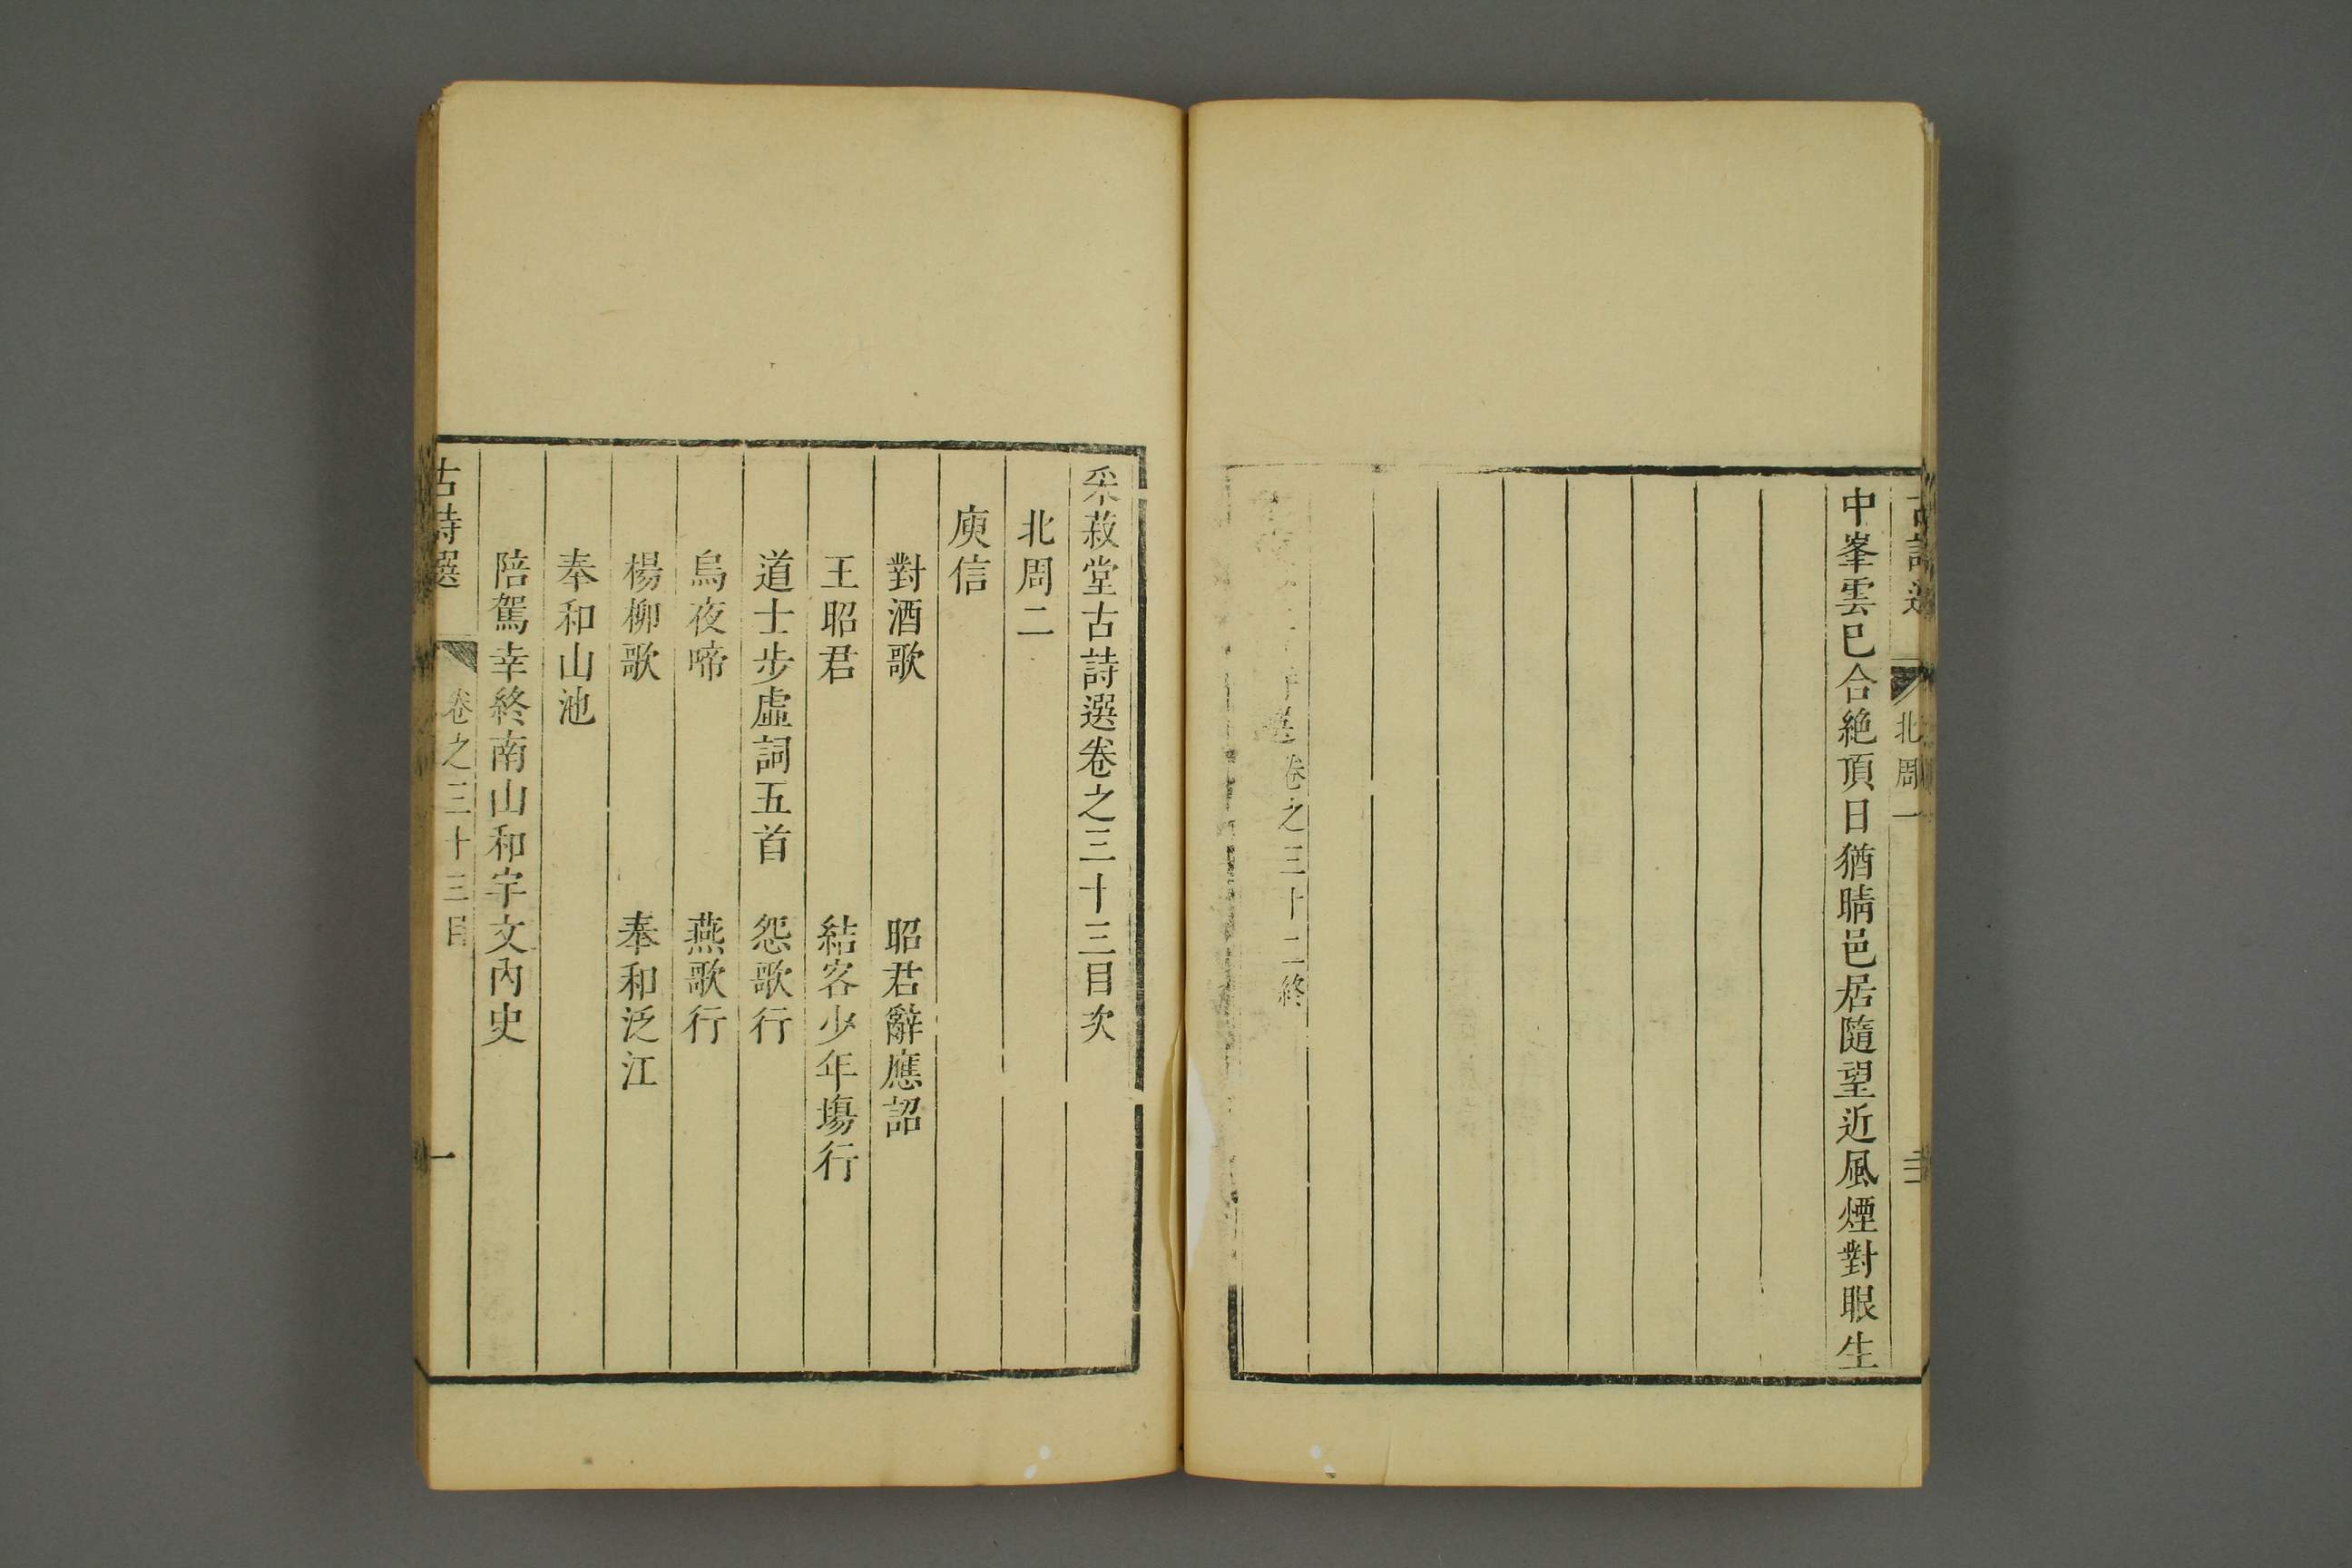 古詩選 北周一
中峯雲巳合絶頂日猶晴邑居隨望近風煙對眼生
選卷之三十二終
采菽堂古詩選卷之三十三目次
北周二
庾信
對酒歌 昭君辭應詔
王昭君 結客少年塲行
道士步虛詞五首 怨歌行
烏夜啼 燕歌行
楊柳歌 奉和泛江
奉和山池
陪駕幸終南山和宇文內史
古詩選 卷之三十三目 一